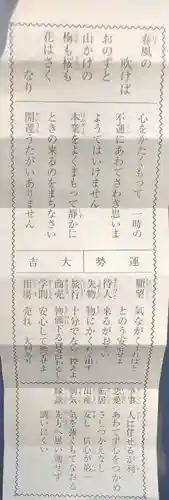 春風の
吹けば
おのずと
山かげの
梅も桜も
花はさく
なり
心をかたくもって 一時の
不運にあわてさわぎ思いま
ようではいけません
本業をよくまもって静かに
ときの来るのをまちなさい
開運うたがいありません
運勢 大吉
願望
待人 来るがおそい
失物 物にかくれ
旅行 十分でない 控えよ
商売
学問 安心して
相場 売れ
争事 人に任せるが利
恋愛 あわて
転居 さしつかえなし
出産 安し 信心が第一
病気 気を強くもてなおる
縁談 先方で
調いにくい